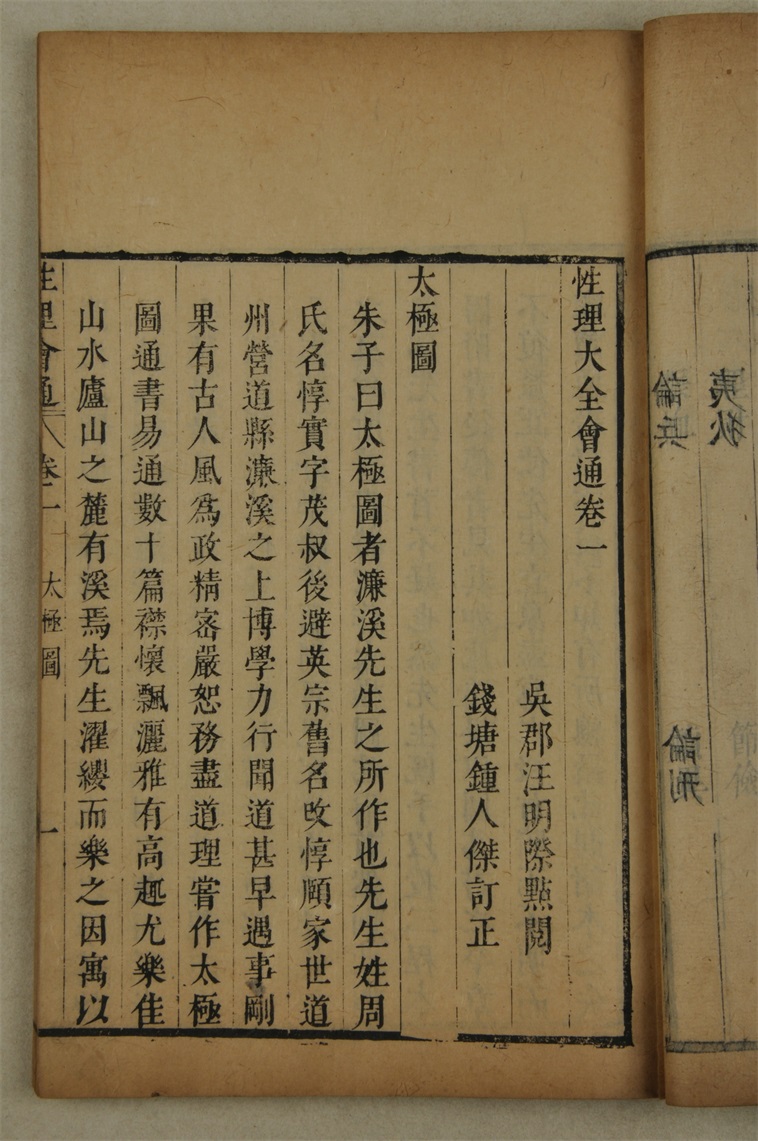 性理大全會通卷一
吳郡汪明際點閱
錢塘鍾人傑訂正
太極圖
朱子曰太極圖者濂溪先生之所作也先生姓周
氏名惇實字茂叔後避英宗舊名改惇頤家世道
州營道縣濂溪之上博學力行聞道甚早遇事剛
果有古人風爲政精密嚴恕務盡道理嘗作太極
圖通書易通數十篇襟懷飄灑雅有高趣尤樂佳
山水廬山之麓有溪焉先生濯纓而樂之因寓以
性理會通 卷一 太極圖 一
夷狄
論兵 論刑